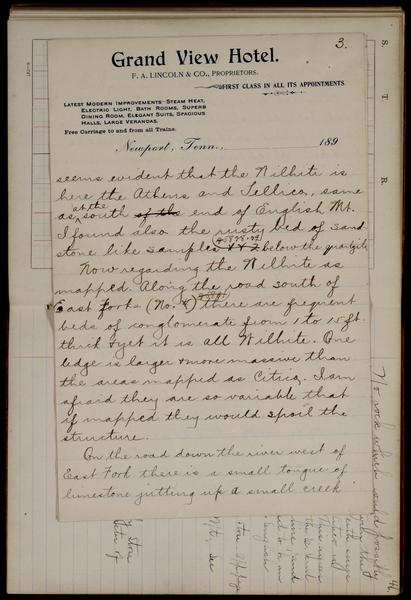 3.
Grand View Hotel.
F. A. LINCOLN & CO., PROPRIETORS.
FIRST CLASS IN ALL ITS APPOINTMENTS.
LATEST MODERN IMPROVEMENTS—STEAM HEAT,
ELECTRIC LIGHT, BATH ROOMS, SUPERB
DINING ROOM, ELEGANT SUITS, SPACIOUS
HALLS, LARGE VERANDAS.
Free Carriage to and from all Trains.
Newport, Tenn., 189
seems evident that the Wilhite is
here the Athens and Tellico, same
as at the south of the end of English Mt.
I found also the rusty bed of sand
stone like samples below the quartzite
Now regarding the Wilhite as
mapped. Along the road south of
East Fork (No. 4) there are frequent
beds of conglomerate from 1 to 15 ft
thick & yet it is all Wilhite. One
ledge is larger & more massive than
the areas mapped as Citico. I am
afraid they are so variable that
if mapped they would spoil the
structure.
On the road down the river west of
East Fork there is a small tongue of
limestone jutting up a small creek
S. T. R.
No rock which could possibly